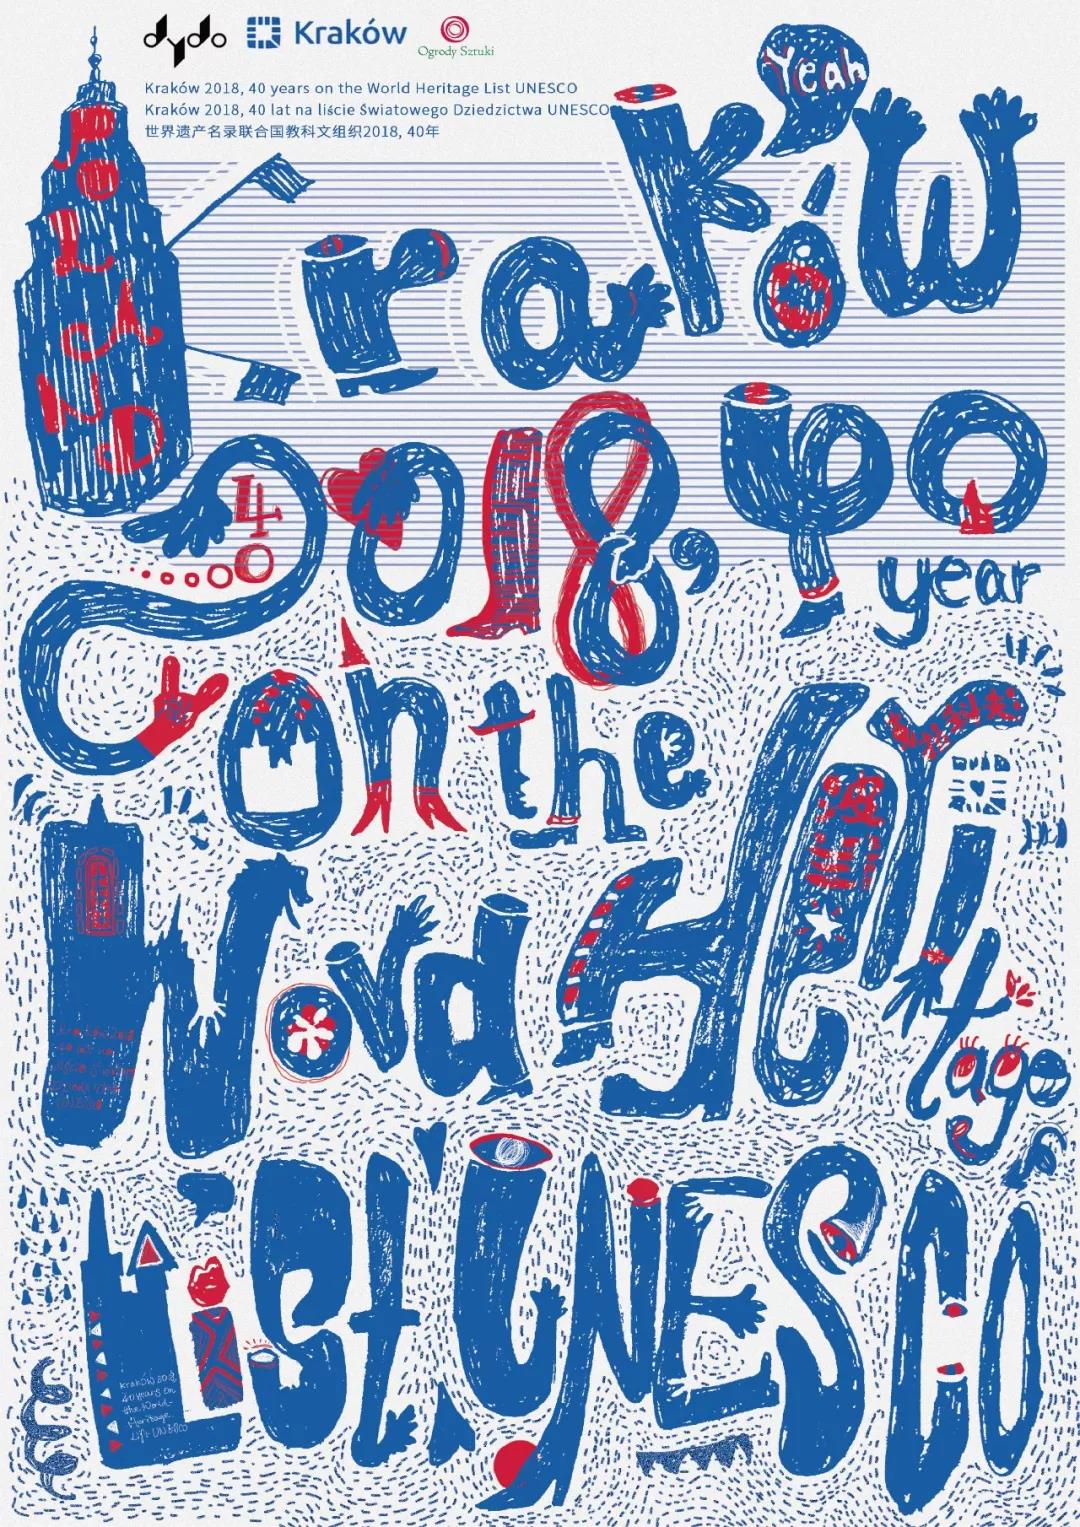 dydo
Kraków
Ogrody Sztuki
Kraków 2018, 40 years on the World Heritage List UNESCO
Kraków 2018, 40 lat na liście Światowego Dziedzictwa UNESCO
世界遗产名录联合国教科文组织2018, 40年
Yeah
PoLaND
kraków
2018, 40
40
year
on the
World Heritage
List UNESCO
Kraków 2018,
40 years on
the World
Heritage
List UNESCO